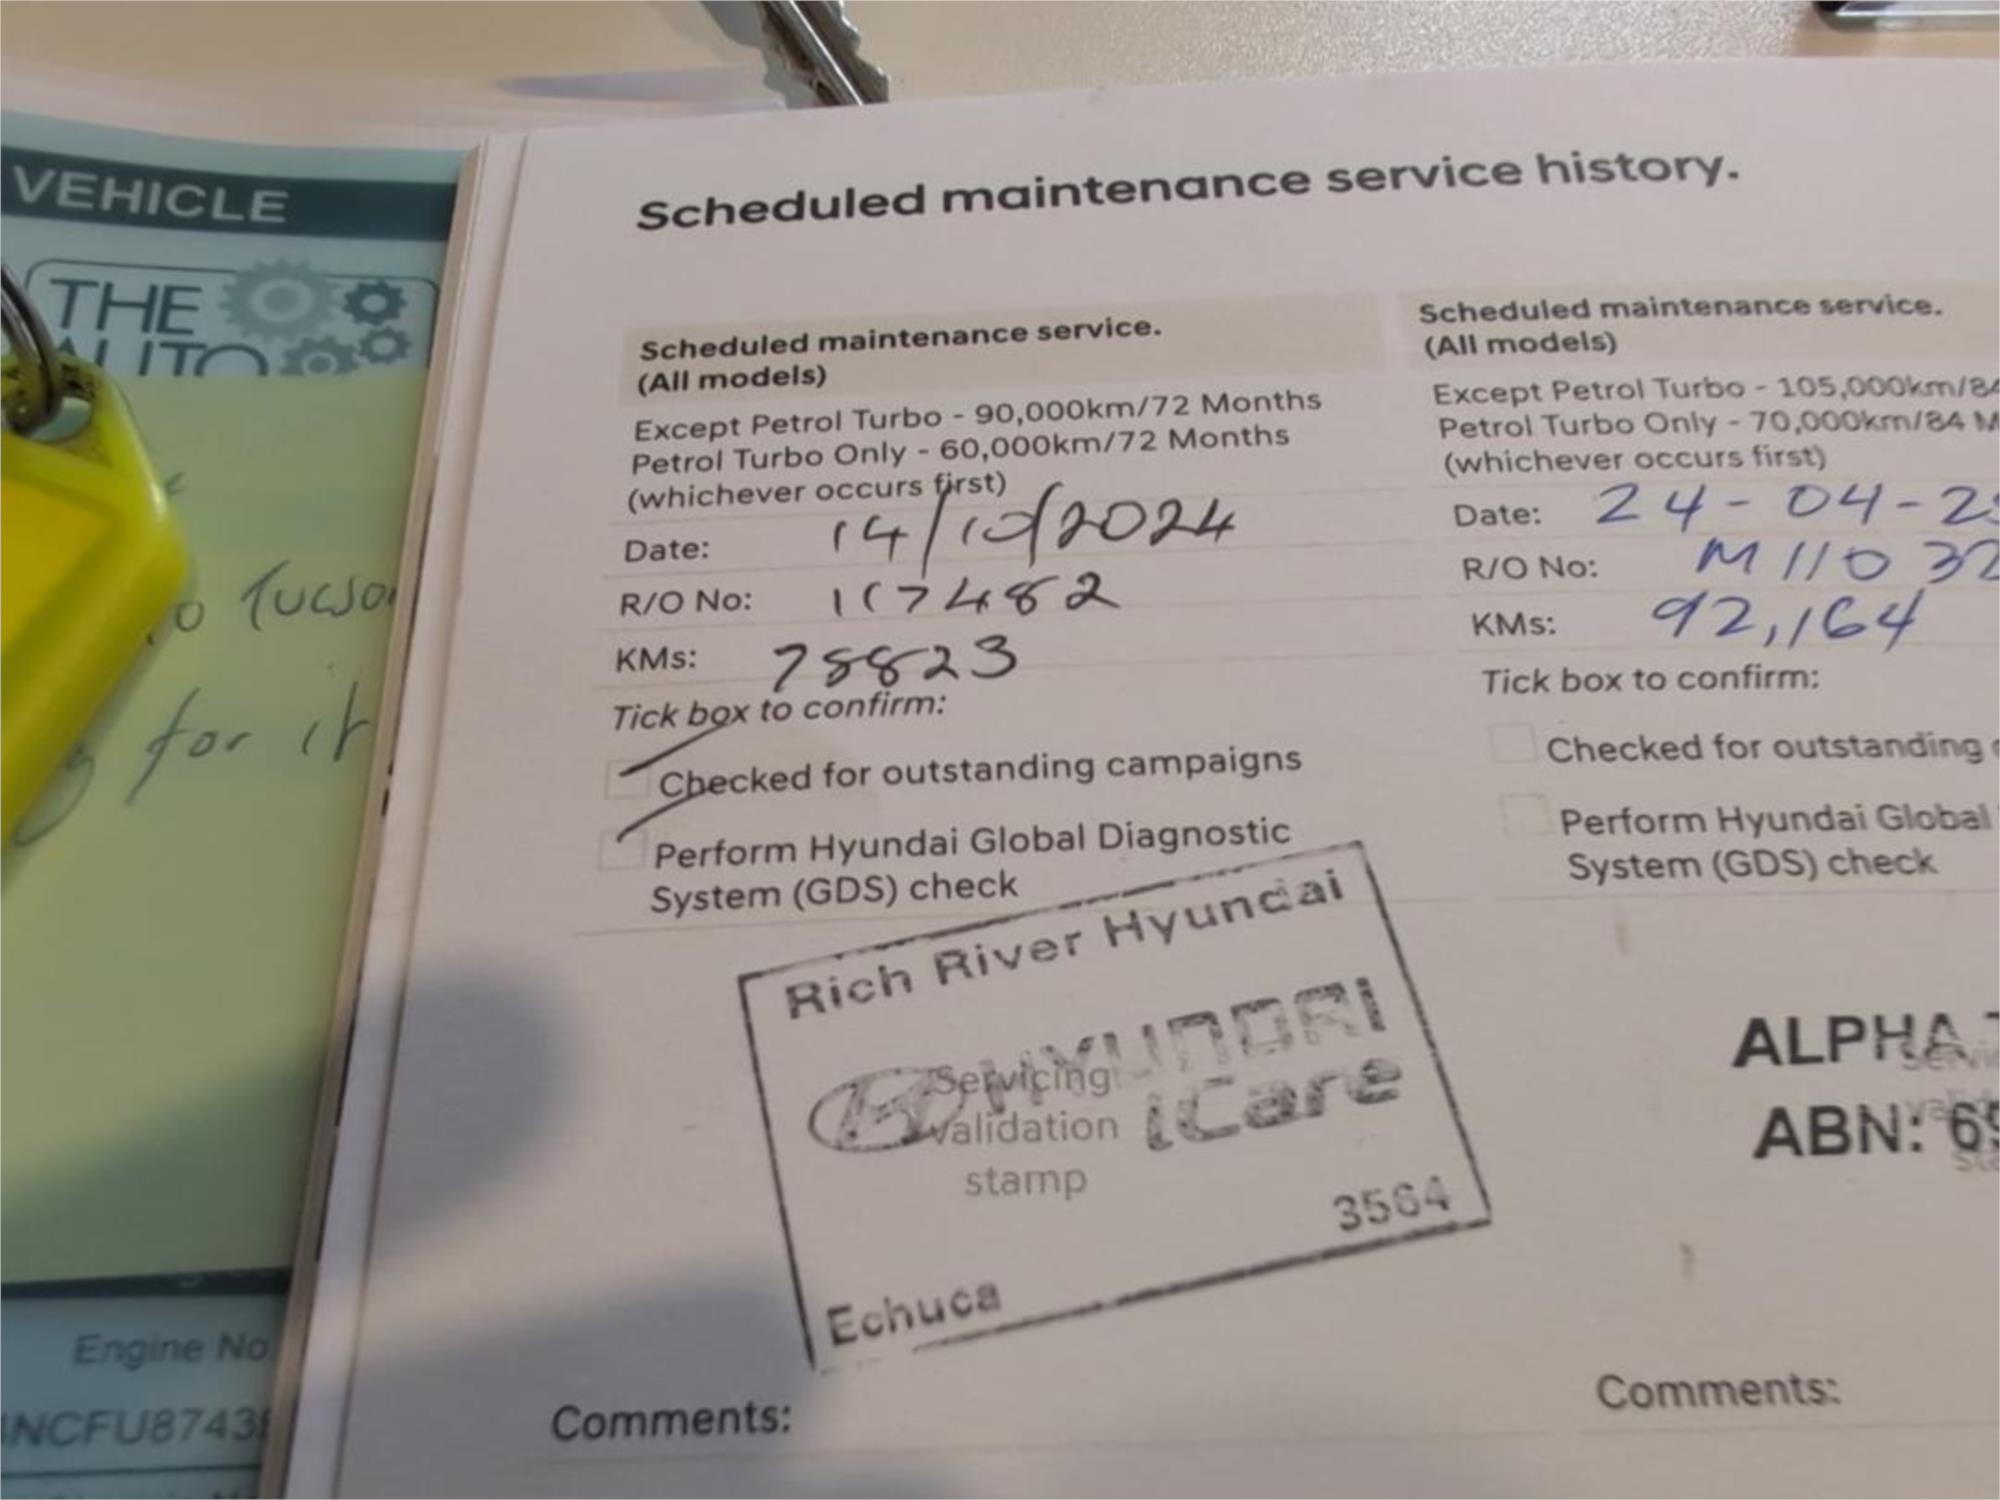 VEHICLE
THE
AUTO
Tucson
for it
Engine No
NCFU8743
Scheduled maintenance service history.
Scheduled maintenance service.
(All models)
Except Petrol Turbo - 90,000km/72 Months
Petrol Turbo Only - 60,000km/72 Months
(whichever occurs first)
Date: 14/10/2024
R/O No: 117482
KMs: 78823
Tick box to confirm:
Checked for outstanding campaigns
Perform Hyundai Global Diagnostic
System (GDS) check
Rich River Hyundai
HYUNDAI
iCare
Servicing
validation
stamp
3564
Echuca
Comments:
Scheduled maintenance service.
(All models)
Except Petrol Turbo - 105,000km/84
Petrol Turbo Only - 70,000km/84 M
(whichever occurs first)
Date: 24-04-2
R/O No: M11032
KMs: 92,164
Tick box to confirm:
Checked for outstanding
Perform Hyundai Global
System (GDS) check
ALPHA
ABN: 69
Comments: